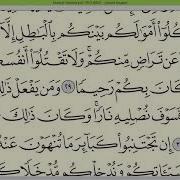 كُلُوٓا۟ أَمْوَٰلَكُم بَيْنَكُم بِٱلْبَٰطِلِ إِلَّآ
عَن تَرَاضٍ مِّنكُمْ ۚ وَلَا تَقْتُلُوٓا۟ أَنفُسَ
كَانَ بِكُمْ رَحِيمًا ٢٩ وَمَن يَفْعَلْ ذَٰلِ
فَسَوْفَ نُصْلِيهِ نَارًا ۚ وَكَانَ ذَٰلِكَ
إِن تَجْتَنِبُوا۟ كَبَآئِرَ مَا تُنْهَوْنَ عَنْهُ
اتِكُمْ وَنُدْخِلْكُم مُّدْخَلًا كَ